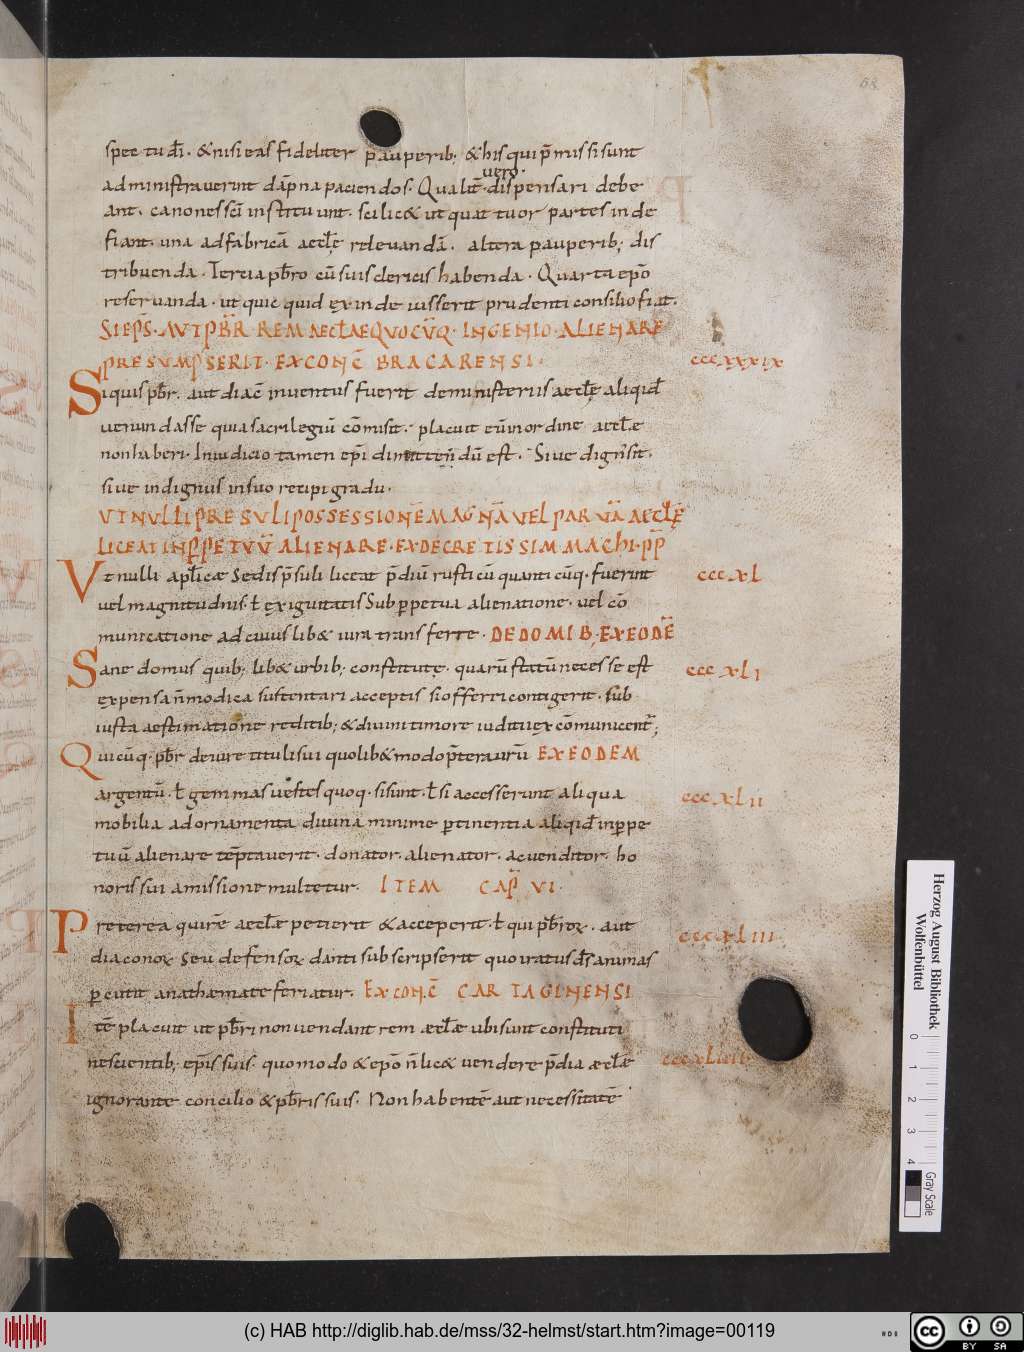 58
spectu dī. & nisi eas fideliter pauperib; & his qui p̄missi sunt
administraverint dāpna paciendos. Qualit̄ vero dispensari debe
ant. canones sc̄i instituunt. scilic& ut quattuor partes inde
fiant. una ad fabricā aeclę̄ relevandā. altera pauperib; dis
tribuenda. Tercia pb̄ro cū suis clericis habenda. Quarta ep̄o
reservanda. ut quicquid ęx inde iusserit prudenti consilio fiat.
SI EP̄S. AUT PB̄R. REM AECL̄AE QUOCŪQ. INGENIO. ALIENARE
PRESUMPSERIT. EX CONC̄ BRACARENSI.
cccxxxix
Siquis pb̄r. aut diac̄ inventus fuerit de ministeriis aeclę̄ aliqid
venundasse quia sacrilegiū cōmisit. placuit eū in ordine aecl̄ae
non haberi. In iudicio tamen ep̄i dimittendū est. Sive dign' sit.
sive indignus in suo recipi gradu.
UT NULLI PRESULI POSSESSIONĒ MAGNĀ VEL PARVĀ AECLĘ̄
LICEAT IN PP̄ETUŪ ALIENARE. EX DECRETIS SIMMACHI. PP̄
cccxl
Ut nulli apl̄icae sedis p̄suli liceat p̄diū rusticū quanticūq. fuerint
vel magnitudinis. ł exiguitatis sub ppetua alienatione. vel cō
municatione ad cuiuslib& iura transferre. DE DOMIB; EX EODĒ
cccxli
Sane domus quib; lib& urbib; constitutę. quarū statū necesse est
ęxpensa n̄ modica sustentari acceptis si offerri contigerit. sub
iusta aestimatione reditib; & divini timore iudicii ęxcōmunicent̄;
Quicūq. pb̄r de iure tituli sui quolib& modo p̄terea urū EX EODEM
argentū. ł gemmas vestes quoq. si sunt. ł si accesserunt aliqua
cccxlii
mobilia ad ornamenta divina minime ptinentia aliqid in ppe
tuū alienare tēptaverit. donator. alienator. ac venditor. ho
noris sui amissione multetur. ITEM CAP̄ VI.
Preterea qui rē aecl̄ae petierit & acceperit. ł qui pb̄roꝝ. aut
cccxliii
diaconoꝝ seu defensoꝝ danti subscripserit quo iratus d̄s animas
pcutit anathaemate feriatur. EX CONC̄ CARTAGINENSI
Itē placuit ut pb̄ri non vendant rem aecl̄ae ubi sunt constituti
nescientib; ep̄is suis. quomodo & ep̄o n̄ lic& vendere p̄dia aecl̄ae
cccxliiii
ignorante concilio & pb̄ris suis. Non habentē aut necessitatē
Herzog August Bibliothek
Wolfenbüttel
0 1 2 3 4
Gray Scale
(c) HAB http://diglib.hab.de/mss/32-helmst/start.htm?image=00119
cc BY SA